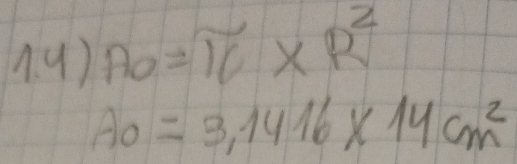 14) Ao = π × R²
Ao = 3,1416 × 14 cm²